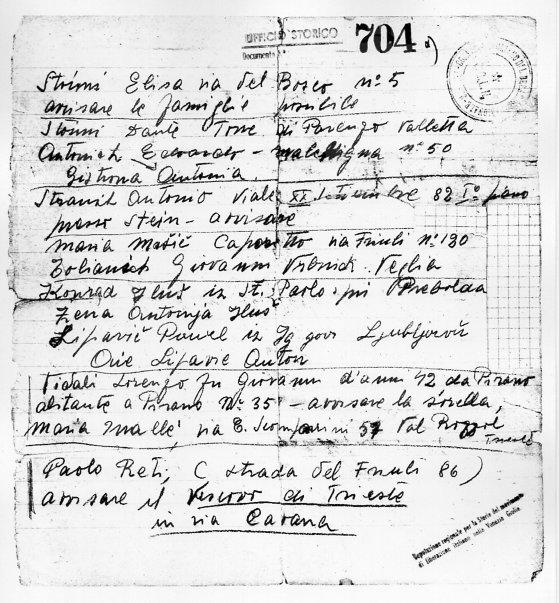 UFFICIO STORICO
Documento N°
704 a)
Strini Elisa via del Bosco n° 5
avvisare le famiglie possibile
Strini Dante Torre di Parenzo Valletta
Antonich Edoardo - n° 50
Antonia
Stranich Antonio Viale XX Settembre 82 I° piano
presso Stein - avvisare
Maria Mašič Caporetto via Friuli n° 130
Giovanni Vrbnich Veglia
Konrad Iluš iz St. Paolo pri Prebolda
Žena Antonija Iluš
Lipavič Pavel iz Ig gori
Oče Lipavic Anton
Vidali Lorenzo fu Giovanni d'anni 42 da Pirano
abitante a Pirano N° 35 - avvisare la sorella,
Maria Mallè, via E. 57 Val Rozzol
Trieste
Paolo Reti, (strada del Friuli 86)
avvisare il Vescovo di Trieste
in via Cavana
Deputazione regionale per la Storia del movimento
di liberazione italiano nella Venezia Giulia